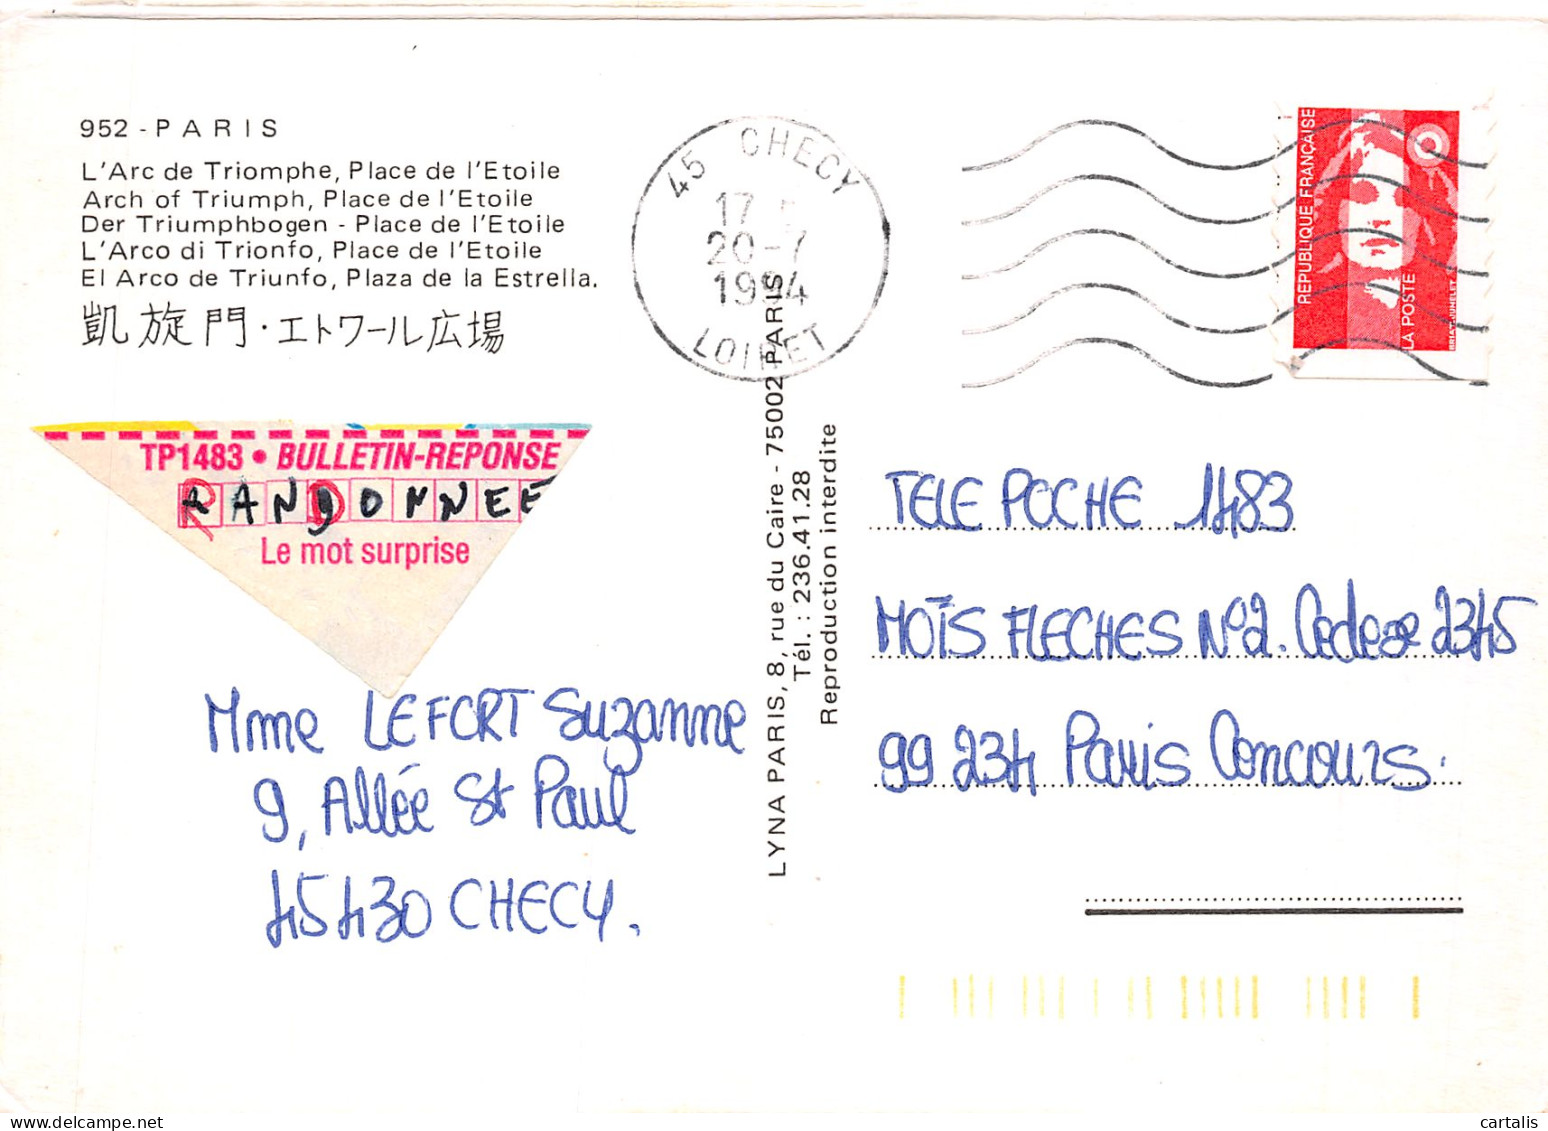 952 - PARIS
L'Arc de Triomphe, Place de l'Etoile
Arch of Triumph, Place de l'Etoile
Der Triumphbogen - Place de l'Etoile
L'Arco di Trionfo, Place de l'Etoile
El Arco de Triunfo, Plaza de la Estrella.
凱旋門・エトワール広場
45 CHECY
17
20-7
1994
LOIRET
REPUBLIQUE FRANÇAISE
LA POSTE
TP1483 • BULLETIN-REPONSE
RANDONNEE
Le mot surprise
LYNA PARIS, 8, rue du Caire - 75002 PARIS
Tél. : 236.41.28
Reproduction interdite
TELE POCHE 1483
MOTS FLECHES N°2. Cedex 2345
99234 Paris Concours.
Mme LEFORT Suzanne
9, Allée St Paul
45430 CHECY.
cartalis